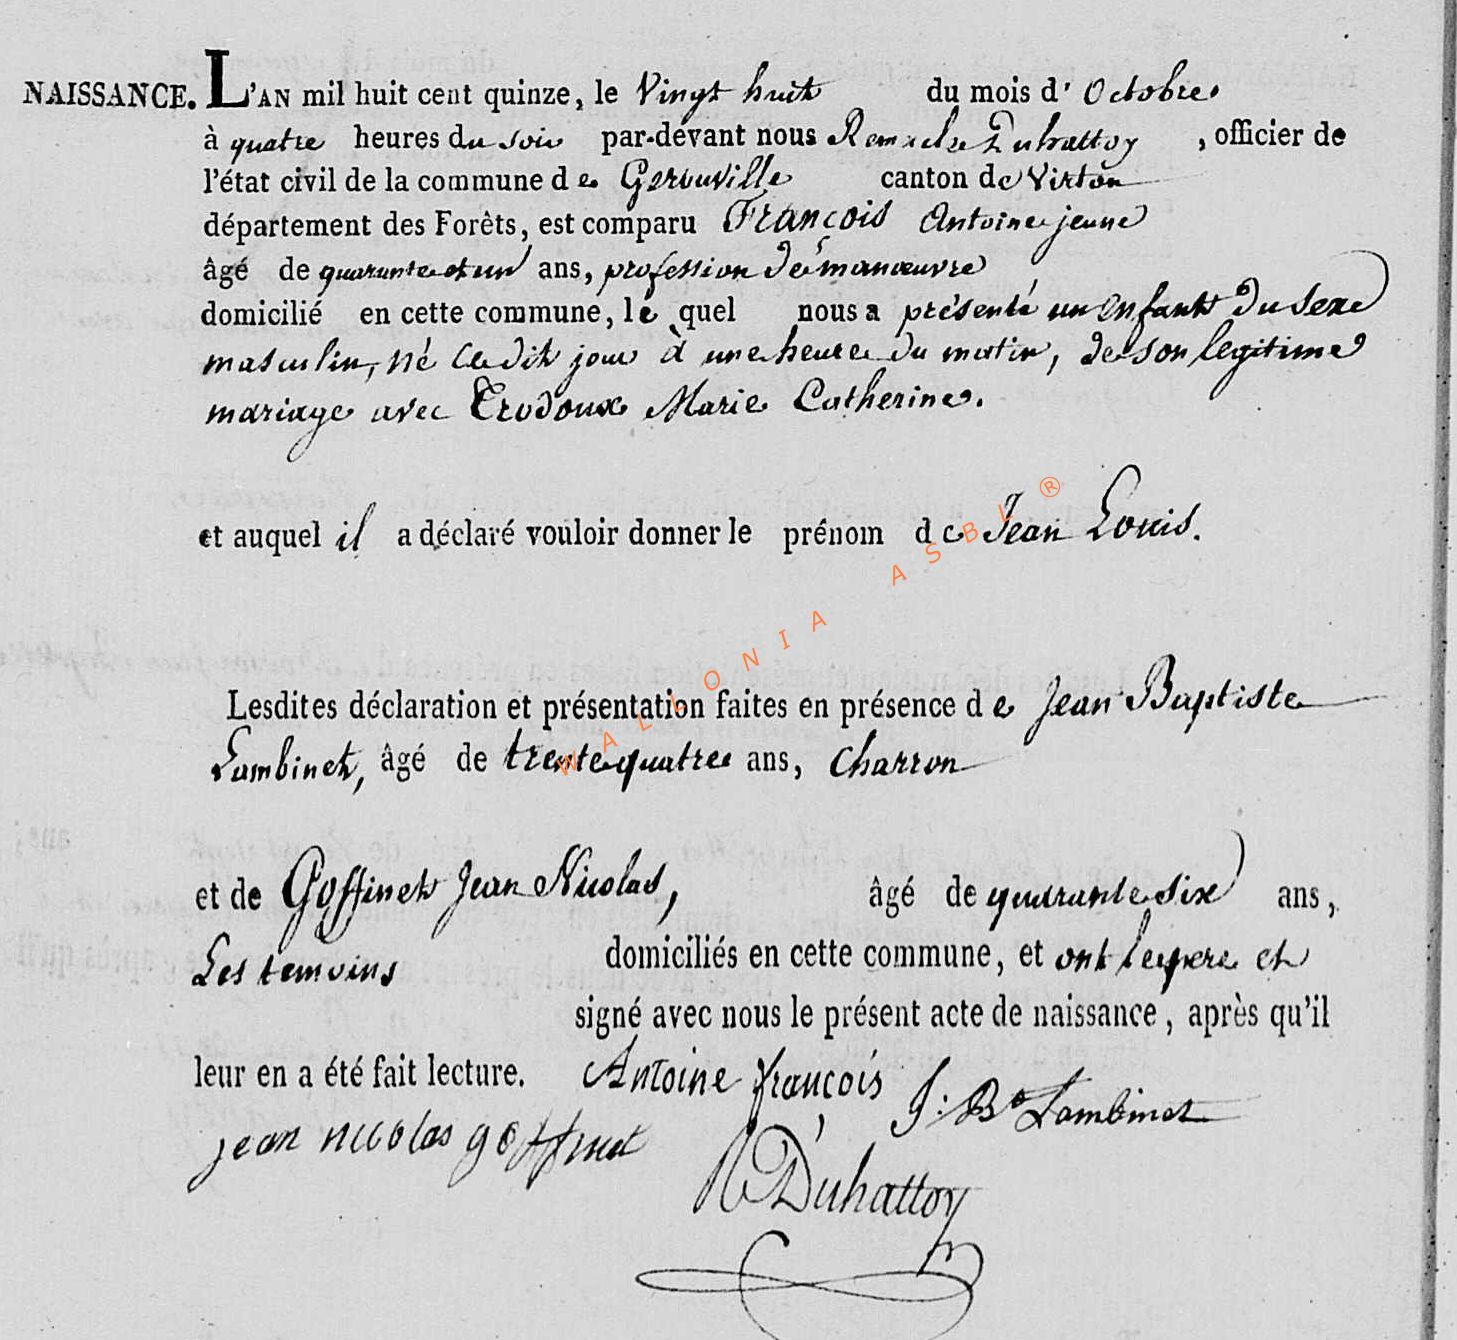 NAISSANCE. L'AN mil huit cent quinze, le Vingt huit du mois d' Octobre.
à quatre heures du soir par-devant nous Remacle Duhattoy, officier de
l'état civil de la commune de Gerouville canton de Virton
département des Forêts, est comparu François Antoine jeune
âgé de quarante et un ans, profession de manœuvre
domicilié en cette commune, le quel nous a présenté un enfant du sexe
masculin, né ce dit jour à une heure du matin, de son legitime
mariage avec Trodoux Marie Catherine.
et auquel il a déclaré vouloir donner le prénom de Jean Louis.
Lesdites déclaration et présentation faites en présence de Jean Baptiste
Lambinet, âgé de trente quatre ans, charron
et de Goffinet Jean Nicolas, âgé de quarante six ans,
Les temoins domiciliés en cette commune, et ont le pere et
signé avec nous le présent acte de naissance, après qu'il
leur en a été fait lecture. Antoine françois J: Bte Lambinet
jean nicolas goffinet
R Duhattoy
WALLONIA ASBL ®